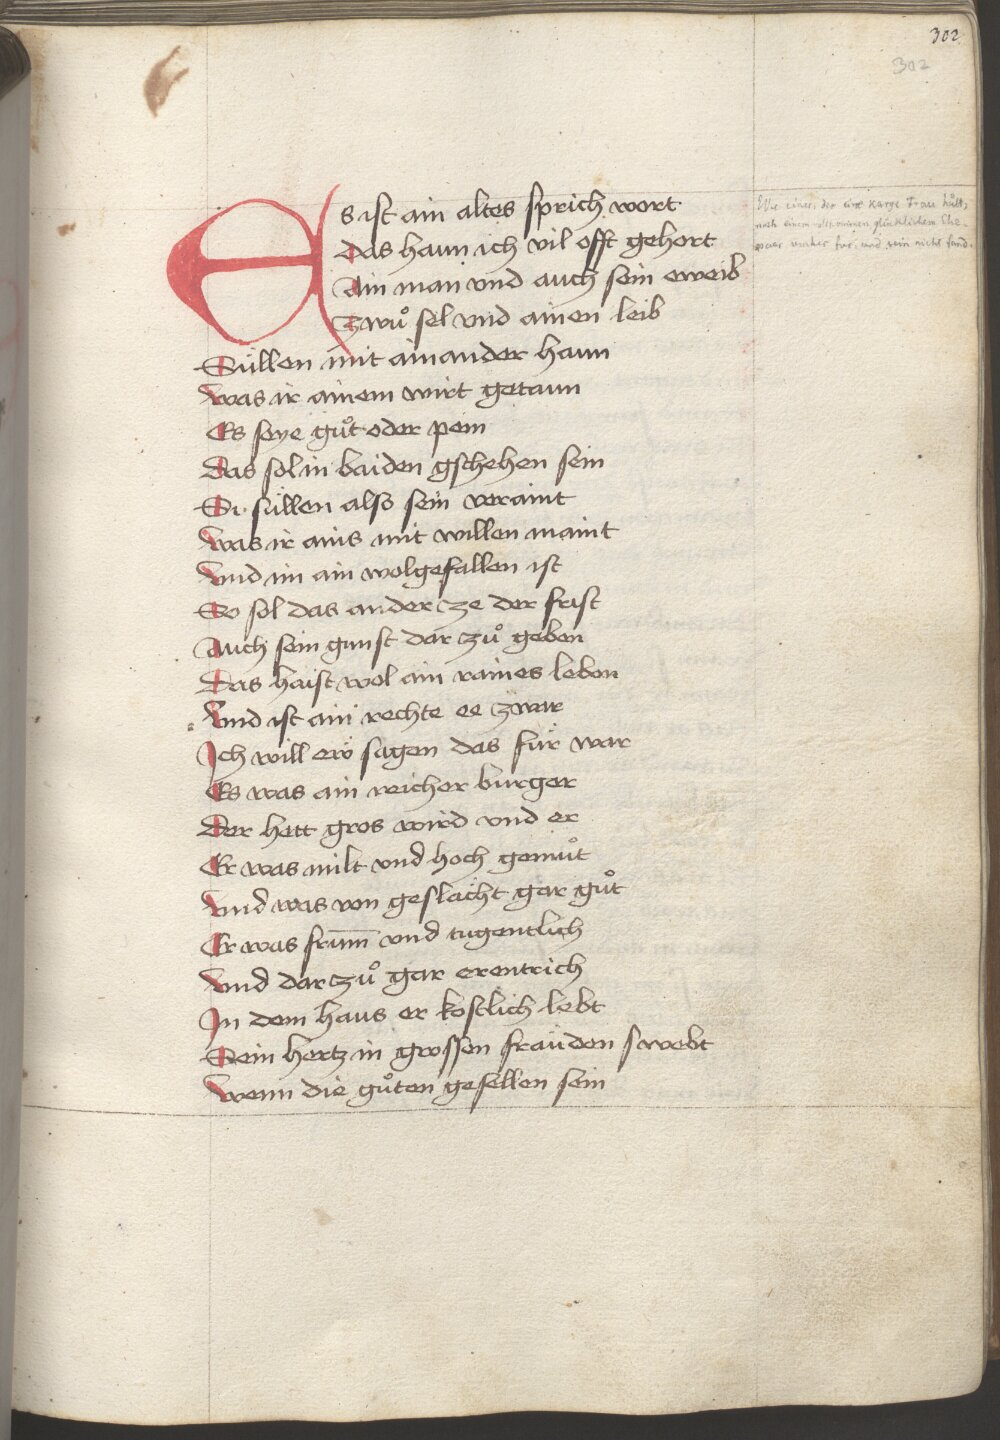 302
302
Es ist ain altes sprich wort
Das haun ich vil offt gehort
Ain man vnd auch sein eweib
Zwuͦ sel vnd ainen leib
Süllen mit ainander haun
Was ir ainem wirt getaun
Es seye guͦt oder pein
Das sol in baiden gschehen sein
Si süllen also sein veraint
Was ir ains mit willen maint
Vnd im ain wolgefallen ist
So sol das ander ze der frist
Auch sein gunst dar zuͦ geben
Das haist wol ain raines leben
Vnd ist ain rechte ee zwar
Ich will ew sagen das für war
Es was ain reicher burger
Der hett gros wird vnd er
Er was milt vnd hoch gemuͦt
Vnd was von geslächt gar guͦt
Er was frum̅ vnd tugentlich
Vnd dar zuͦ gar erentrich
In dem haus er kostlich lebt
Sein hertz in grossen fräuden swebt
Wenn die guͦten gesellen sein
Wie einer, der eine karge Frau hatte,
nach einem vollkommen glücklichen Ehe-
paar umher fuhr und kein nicht fand.